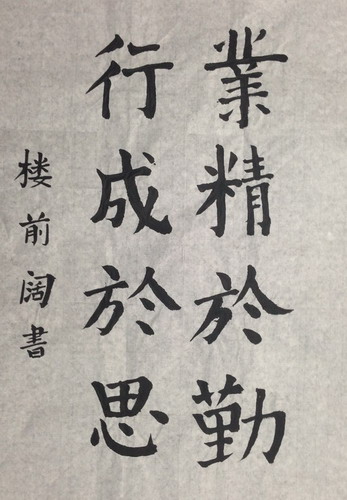 業精於勤
行成於思
楼前阔書